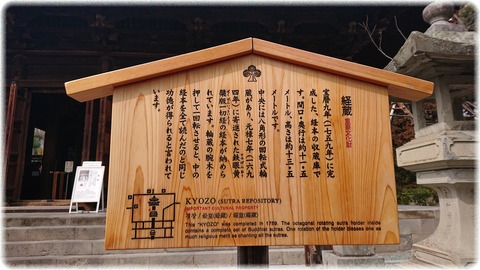 経蔵 重要文化財
宝暦九年(一七五九年)に完
成した、経本の収蔵庫で
す。間口・奥行は約十一・五
メートル、高さは約十三・五
メートルです。
中央には八角形の回転式輪
蔵があり、元禄七年(一六九
四年)に寄進された鉄眼黄
檗版一切経の経本が納めら
れています。輪蔵の腕木を
押して一回転させると、中の
経本を全て読んだのと同じ
功徳が得られると言われて
います。
KYOZO (SUTRA REPOSITORY)
IMPORTANT CULTURAL PROPERTY
This "KYOZO" was completed in 1759. The octagonal rotating sutra holder inside
contains a complete set of Buddhist sutras. One rotation of the holder blesses one as
much religious merit as chanting all the sutras.